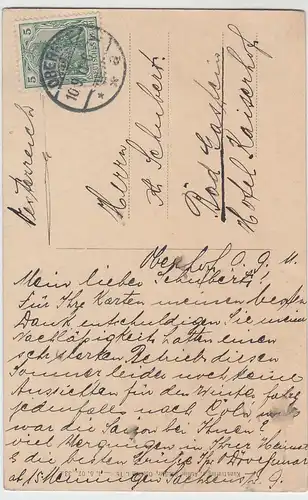 5
5
OBERHOF
10.9.
Oesterreich
Herrn
K. Schubert
Bad Gastein
Hotel Kaiserhof
Oberhof 9. 11
Mein lieber Schubert!
Für Ihre Karten meinen besten
Dank entschuldigen Sie meine
Nachläßigkeit hatten einen
Betrieb diesen
Sommer leider noch keine
Aussichten für den Winter fahre
jedenfalls nach Cöln wie
war die Saison bei Ihnen?
viel Vergnügen in Ihrer Heimat
& die besten Grüße Ihr
Meiningen Sachsenstr. 9.